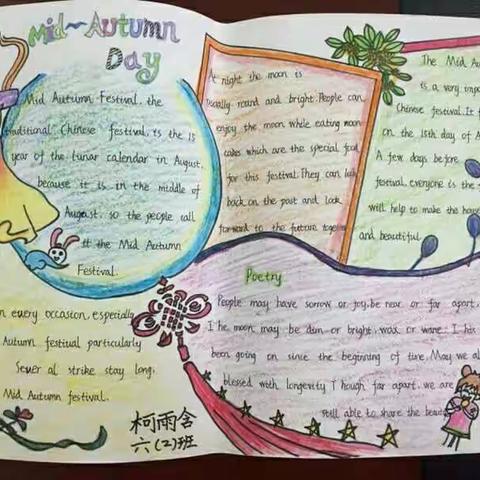 Mid-Autumn
Day
Mid Autumn Festival, the
traditional Chinese festival, is the 15
year of the lunar calendar in August,
because it is in the middle of
August, so the people call
it the Mid Autumn
Festival.
At night the moon is
usually round and bright. People can
enjoy the moon while eating moon
cakes which are the special food
for this festival. They can look
back on the past and look
forward to the future together
The Mid Au
is a very impo
Chinese festival. It f
on the 15th day of A
A few days before
festival, everyone is the
will help to make the hous
and beautiful
n every occasion, especially
Autumn festival particularly
Sever al strike stay long,
Mid Autumn festival.
Poetry
People may have sorrow or joy, be near or far apart,
The moon may be dim or bright, wax or wane. This
been going on since the beginning of time. May we al
blessed with longevity Though far apart, we are
still able to share the beaut
柯雨含
六(2)班